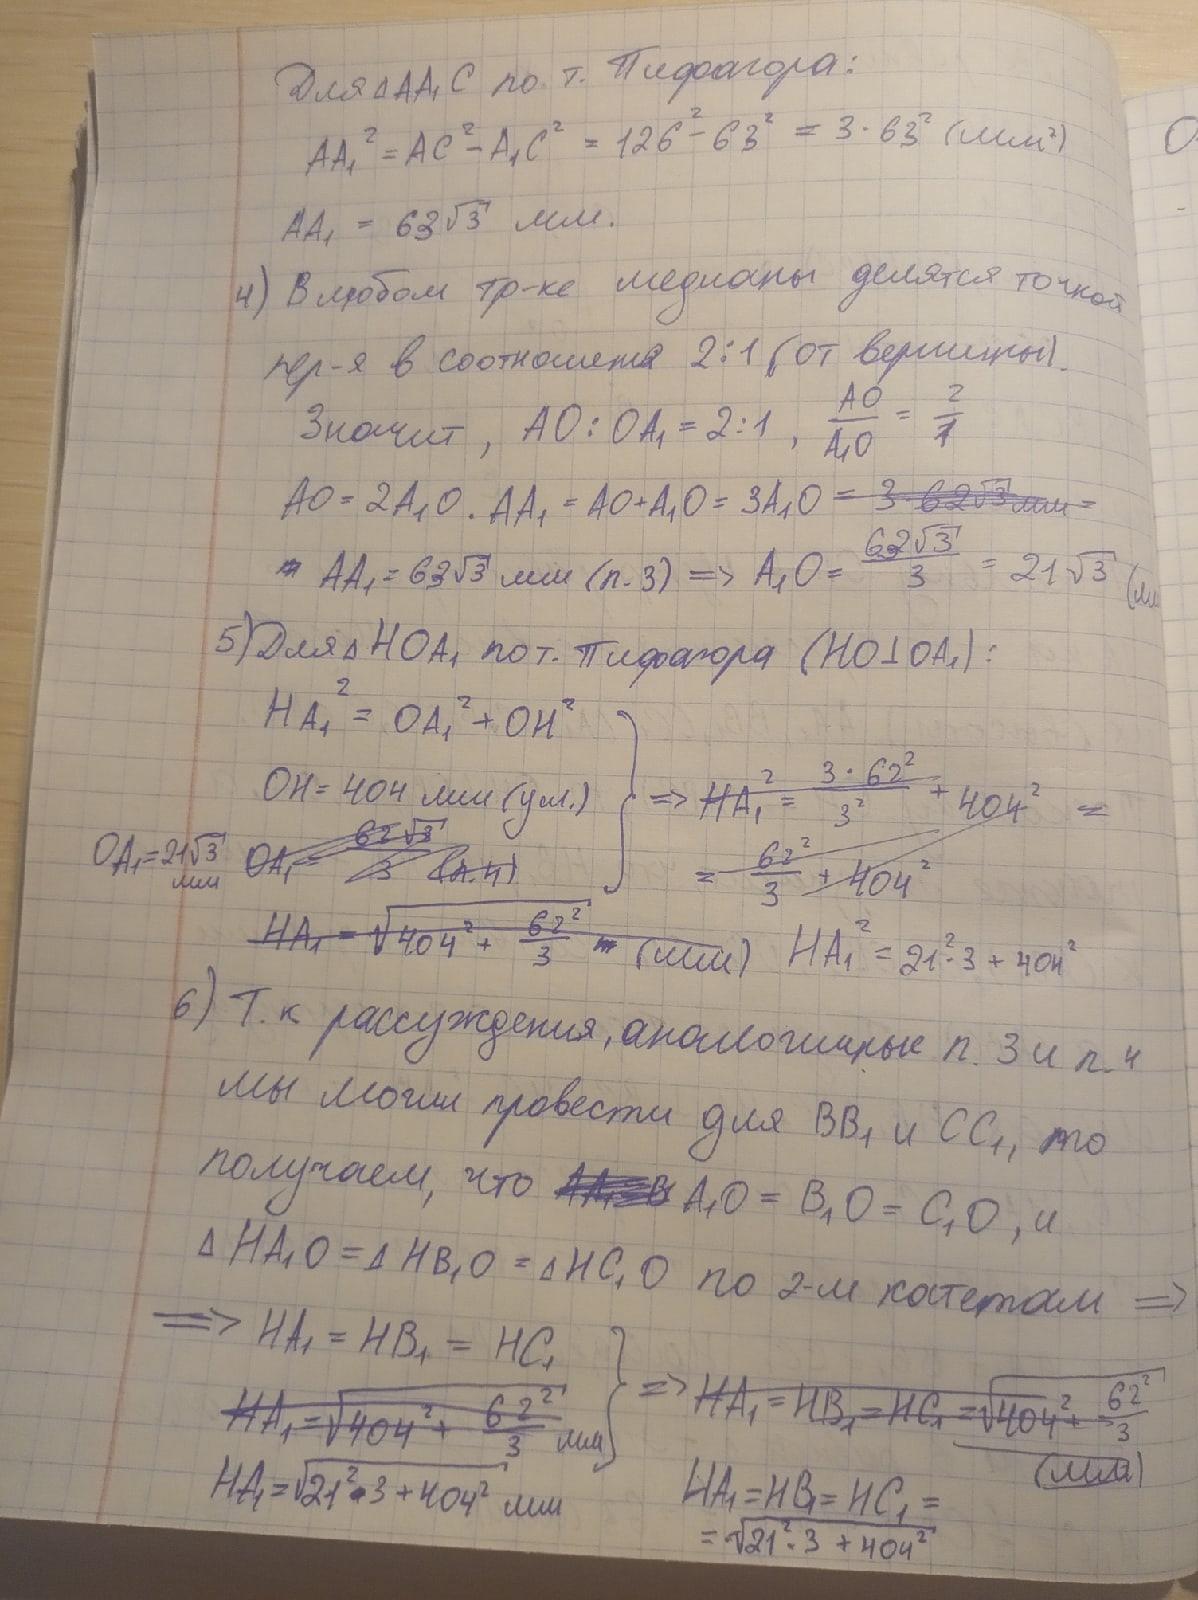 Для △AA₁C по т. Пифагора:
AA₁² = AC² - A₁C² = 126² - 63² = 3·63² (мм²)
AA₁ = 63√3 мм.
4) В любом тр-ке медианы делятся точкой
пер-я в соотношения 2:1 (от вершины).
Значит, AO:OA₁ = 2:1, AO/A₁O = 2/1
AO = 2A₁O. AA₁ = AO + A₁O = 3A₁O = 3·62√3 мм =
AA₁ = 63√3 мм (п.3) => A₁O = 63√3/3 = 21√3 (мм
5) Для △HOA₁ по т. Пифагора (HO⊥OA₁):
HA₁² = OA₁² + OH²
OH = 404 мм (ум.) } => HA₁² = 3·62²/3² + 404² =
OA₁ = 21√3 мм OA₁ = 62√3/3 (п.4) = 62²/3 + 404²
HA₁ = √404² + 62²/3 (мм) HA₁² = 21²·3 + 404²
6) Т.к рассуждения, аналогичные п. 3 и п. 4
мы могли провести для BB₁ и CC₁, то
получаем, что AA₁ = B A₁O = B₁O = C₁O, и
△HA₁O = △HB₁O = △HC₁O по 2-м катетам =>
=> HA₁ = HB₁ = HC₁
HA₁ = √404² + 62²/3 мм } => HA₁ = HB₁ = HC₁ = √404² + 62²/3 (мм)
HA₁ = √21²·3 + 404² мм HA₁ = HB₁ = HC₁ =
= √21²·3 + 404²